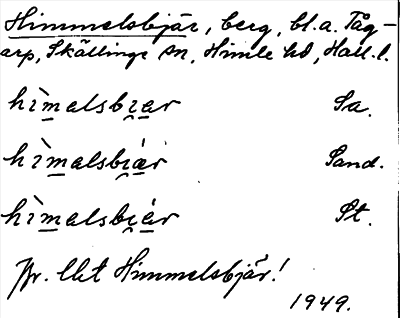 Himmelsbjär, berg, bl.a. Tåg-
arp, Skällinge sn, Himle hd, Hall. l.
hìmalsbiar Sa.
hìmalsbiár Sand.
hìmalsbiár St.
Jfr. Utt Himmelsbjär!
1949.